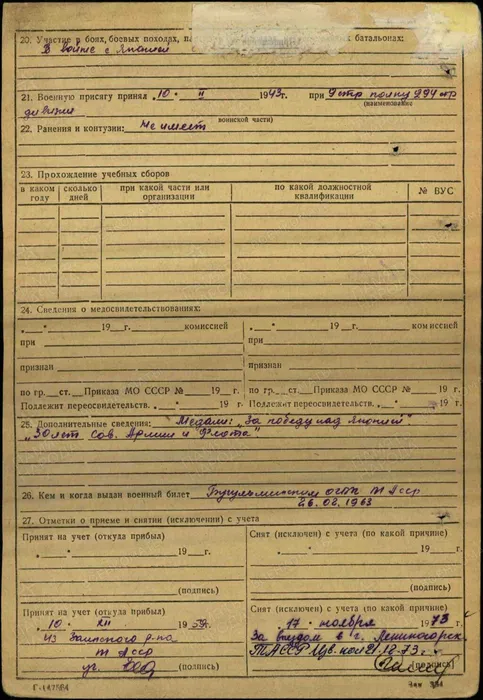 20. Участие в боях, боевых походах, батальонах:
В войне с Японией
21. Военную присягу принял „10" II 1943г. при 9 стр полку 294 стр
(наименование
дивизия
воинской части)
22. Ранения и контузии: Не имеет
23. Прохождение учебных сборов
в каком году
сколько дней
при какой части или организации
по какой должностной квалификации
№ ВУС
24. Сведения о медосвидетельствованиях:
„ " 19 г. комиссией „ " 19 г. комиссией
при при
признан признан
по гр. ст. Приказа МО СССР № 19 г. по гр. ст. Приказа МО СССР № 19 г.
Подлежит переосвидетельств. 19 г. Подлежит переосвидетельств. 19 г.
25. Дополнительные сведения: Медали: „За победу над Японией"
„30 лет Сов. Армии и Флота"
26. Кем и когда выдан военный билет Бугульминском ТАССР
26.02.1963
27. Отметки о приеме и снятии (исключении) с учета
Принят на учет (откуда прибыл)
„ " 19 г.
(подпись)
Снят (исключен) с учета (по какой причине)
„ " 19 г.
(подпись)
Принят на учет (откуда прибыл)
„10" XII 19 г.
из Заинского р-на
ТАССР
(подпись)
Снят (исключен) с учета (по какой причине)
„17" ноября 1973 г.
За выездом в г. Лениногорск
ТАССР
(подпись)